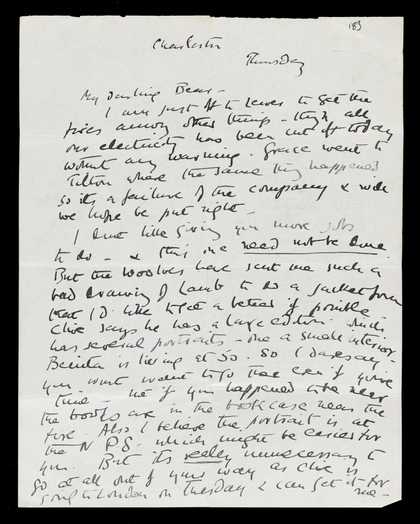 183
Charleston
Thursday
My darling Bear –
I am just off to Lewes to get the
fires among other things – they & all
our electricity has been cut off today
without any warning. Grace went to
Tilton where the same thing happened
so its a failure of the company & will
we hope be put right –
I dont like giving you more jobs
to do – & this one need not be done.
But the Woolves have sent me such a
bad drawing of Lamb to do a jacket from
that I'd like to get a better if possible –
Clive says he has a large edition which
has several portraits – one a small interior
Benita is living at 50. So I daresay
you wont want to go there even if you've
time – but if you happened to be near
the books are in the bookcase near the
fire. Also I believe the portrait is at
the N P G. which might be easier for
you. But its really unnecessary to
go at all out of your way as Clive is
going to London on Tuesday & can get it for
me –